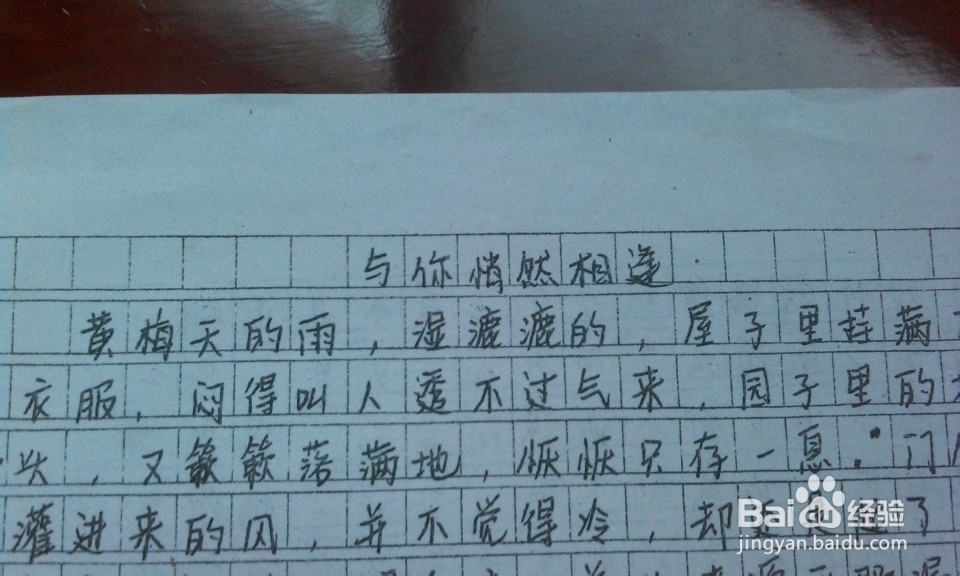 与你悄然相逢
黄梅天的雨，湿漉漉的，屋子里挂满
衣服，闷得叫人透不过气来，园子里的
头，又簌簌落满地，恹恹只存一息。门
灌进来的风，并不觉得冷，却
了
Baidu经验
jingyan.baidu.com